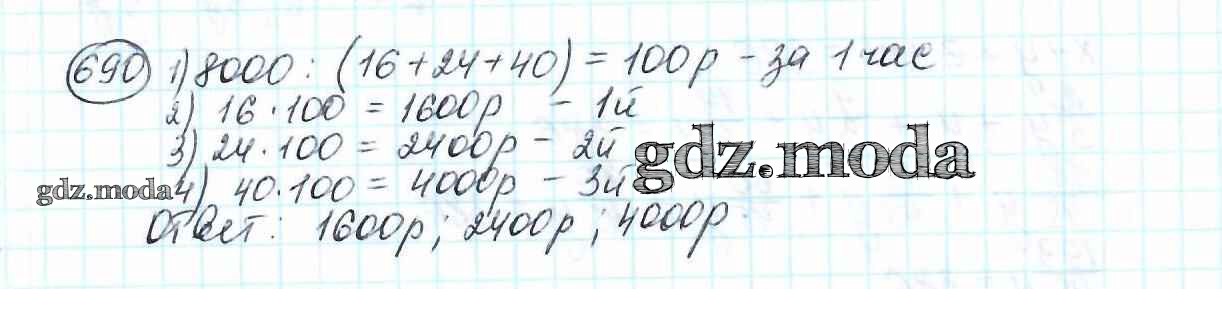 690 1) 8000 : (16 + 24 + 40) = 100р - за 1 час
2) 16 · 100 = 1600р - 1й
3) 24 · 100 = 2400р - 2й
gdz.moda
gdz.moda 4) 40 · 100 = 4000р - 3й
Ответ: 1600р; 2400р; 4000р.